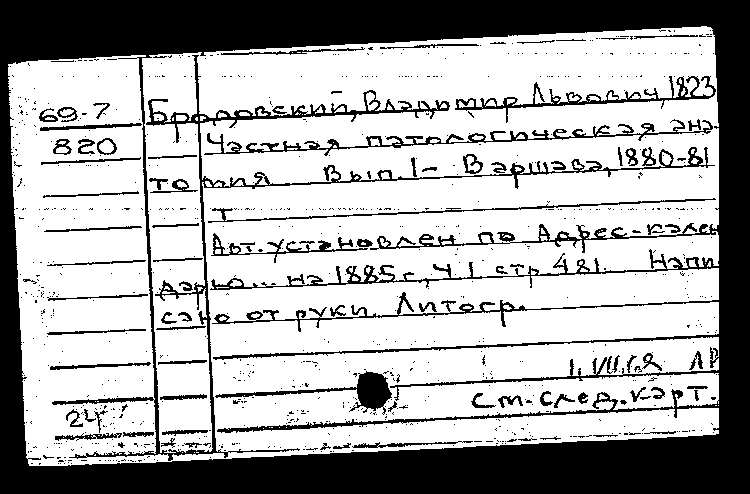 69-7 Бродовский, Владимир Львович, 1823
820 Частная патологическая ана-
томия Вып. 1- Варшава, 1880-81
т
Авт. установлен по Адрес-кален
дарю... на 1885 г., Ч 1 стр 481. Напи
сано от руки. Литогр.
ЛР
24 См. след. карт.